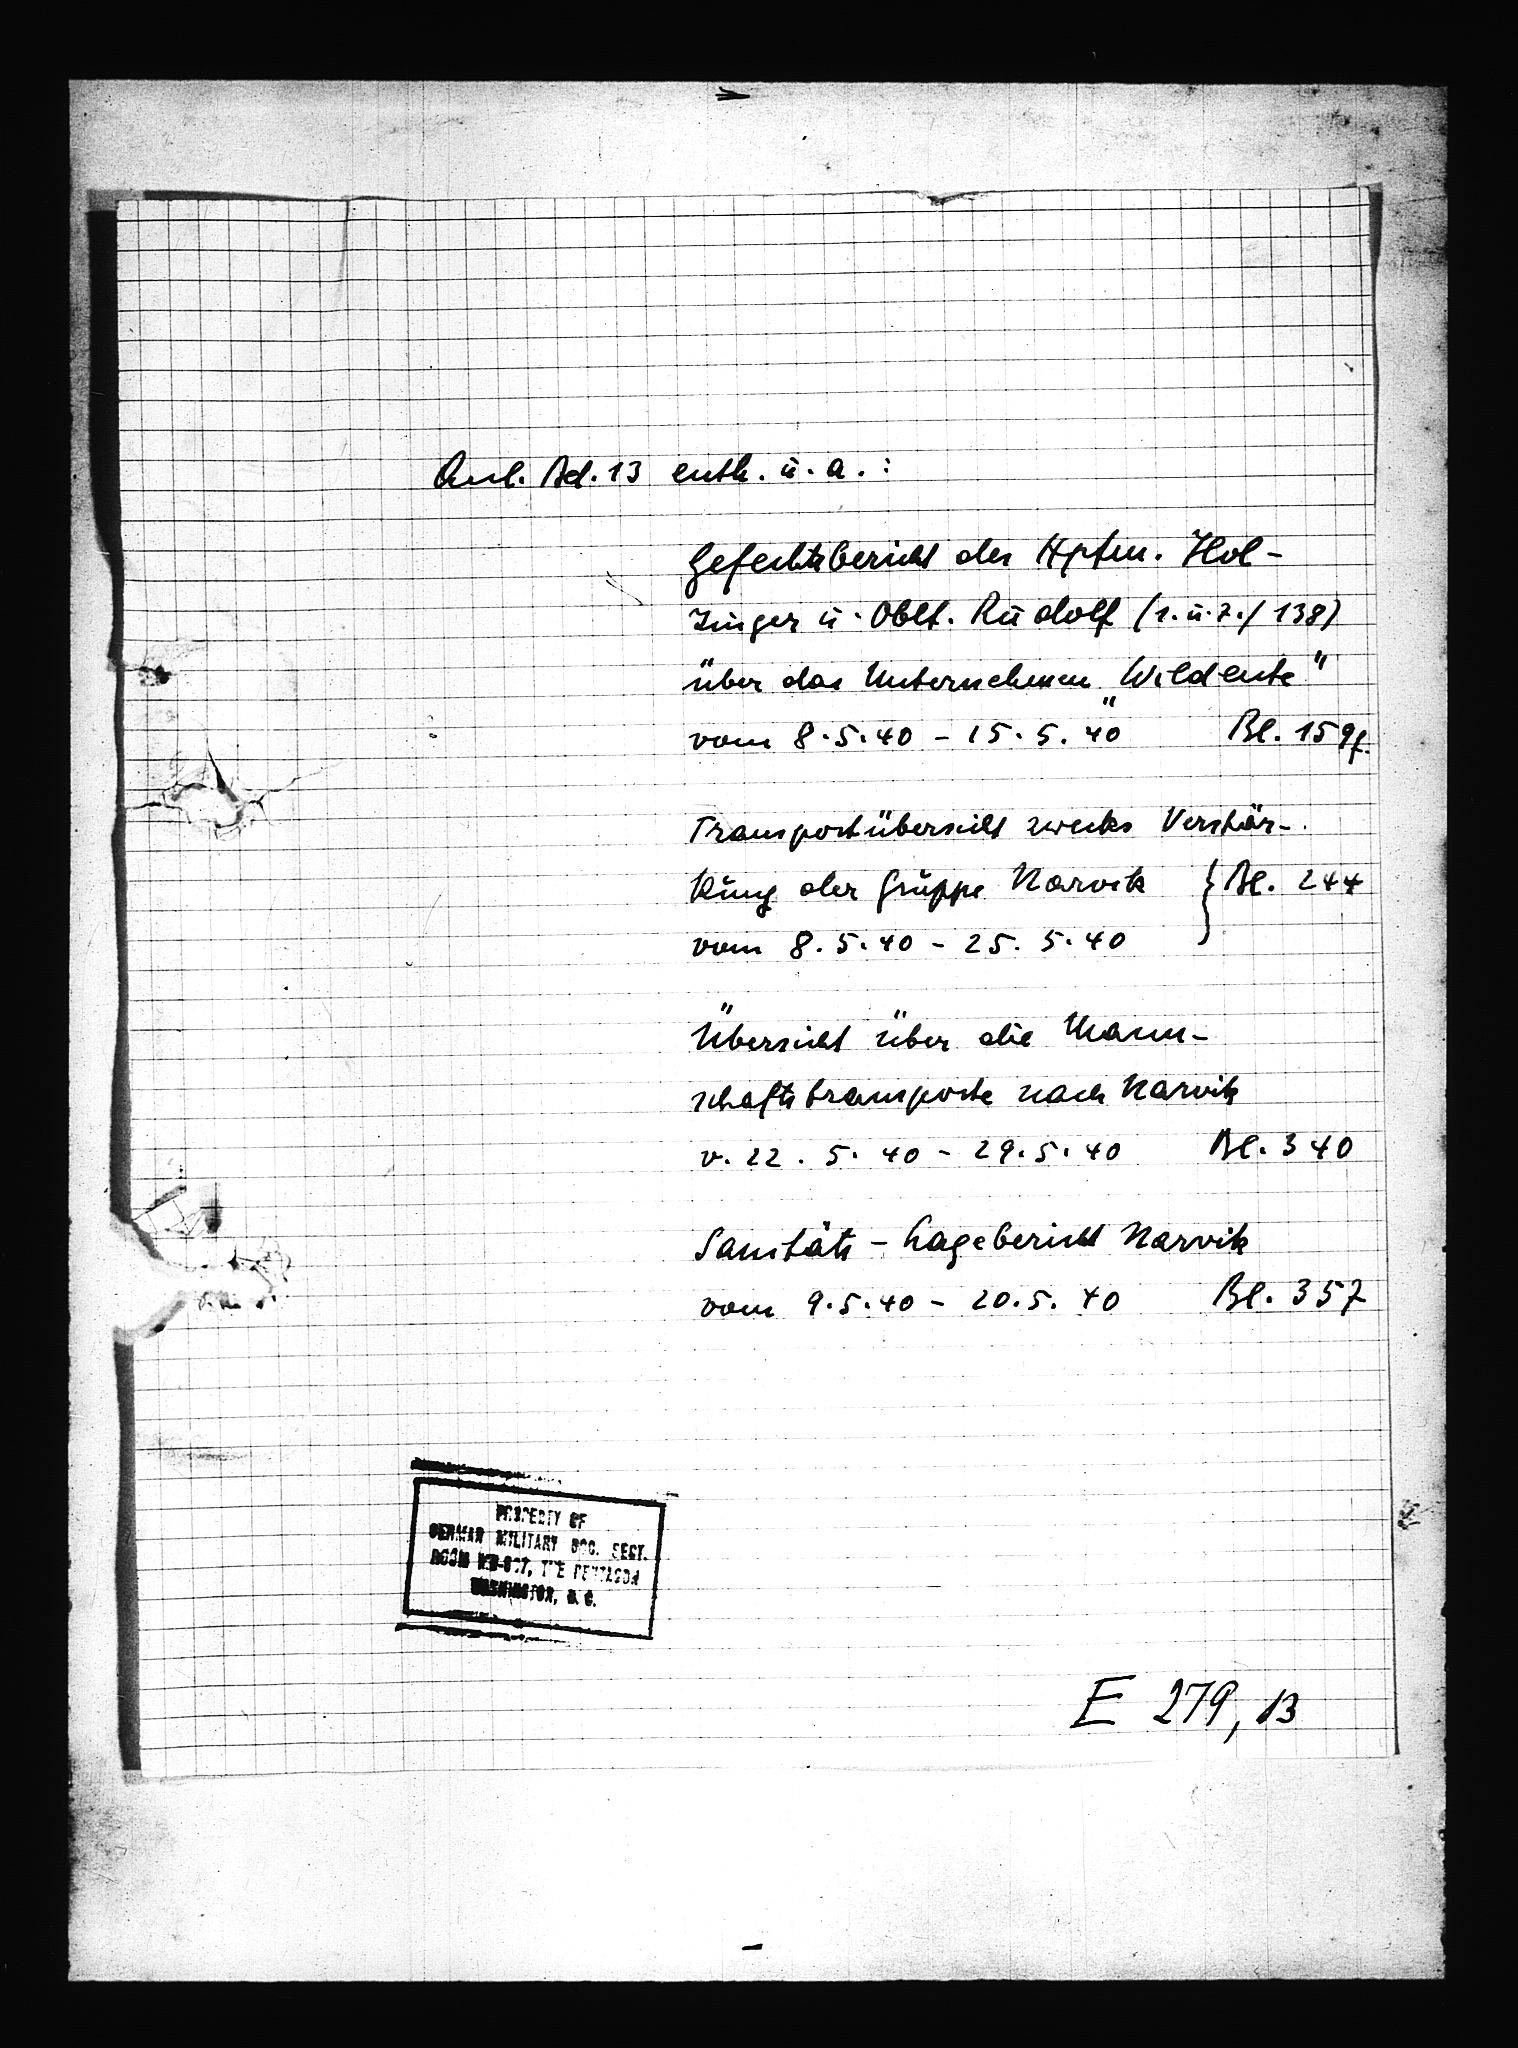 Anl. Bd. 13 enth. u. a. :
Gefechtsbericht des Hptm. Hol-
zinger u. Oblt. Rudolf (1. u. 7./138)
über das Unternehmen „Wildente"
vom 8.5.40 - 15.5.40 Bl. 159f.
Transportübersicht zwecks Verstär-
kung der Gruppe Narvik } Bl. 244
vom 8.5.40 - 25.5.40
Übersicht über die Mann-
schaftstransporte nach Narvik
v. 22.5.40 - 29.5.40 Bl. 340
Sanitäts - Lagebericht Narvik
vom 9.5.40 - 20.5.40 Bl. 357
PROPERTY OF
GERMAN MILITARY DOC. SECT.
ROOM THE PENTAGON
WASHINGTON, D. C.
E 279, 13